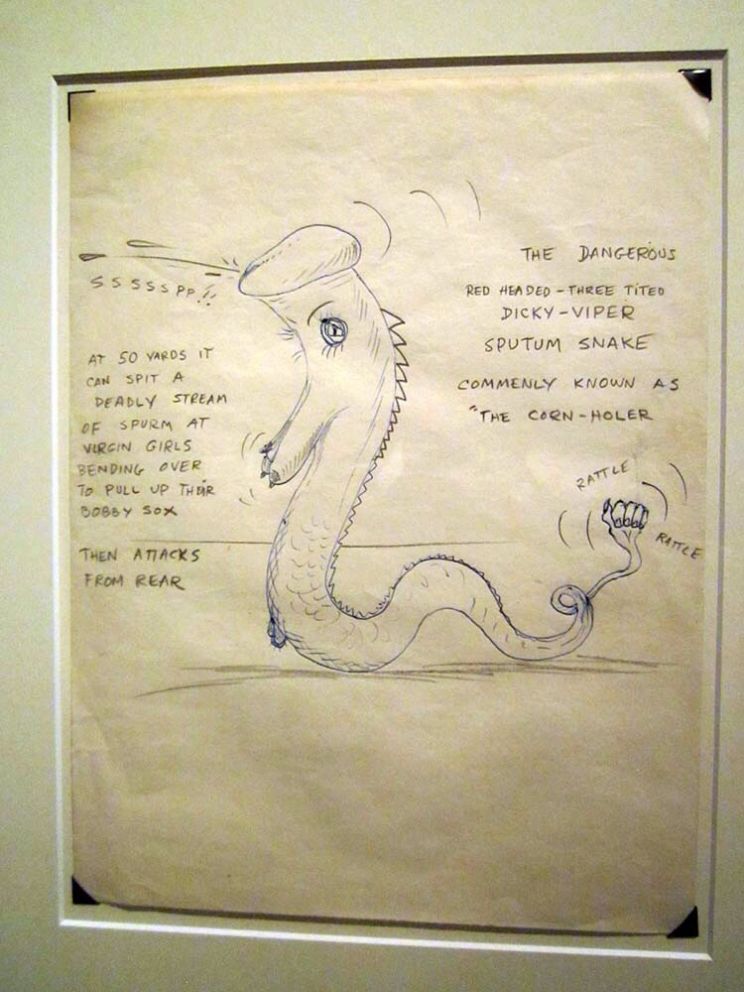 SSSSSPP!!
THE DANGEROUS
RED HEADED - THREE TITED
DICKY - VIPER
SPUTUM SNAKE
COMMENLY KNOWN AS
"THE CORN-HOLER
AT 50 YARDS IT
CAN SPIT A
DEADLY STREAM
OF SPURM AT
VIRGIN GIRLS
BENDING OVER
TO PULL UP THEIR
BOBBY SOX
THEN ATTACKS
FROM REAR
RATTLE
RATTLE